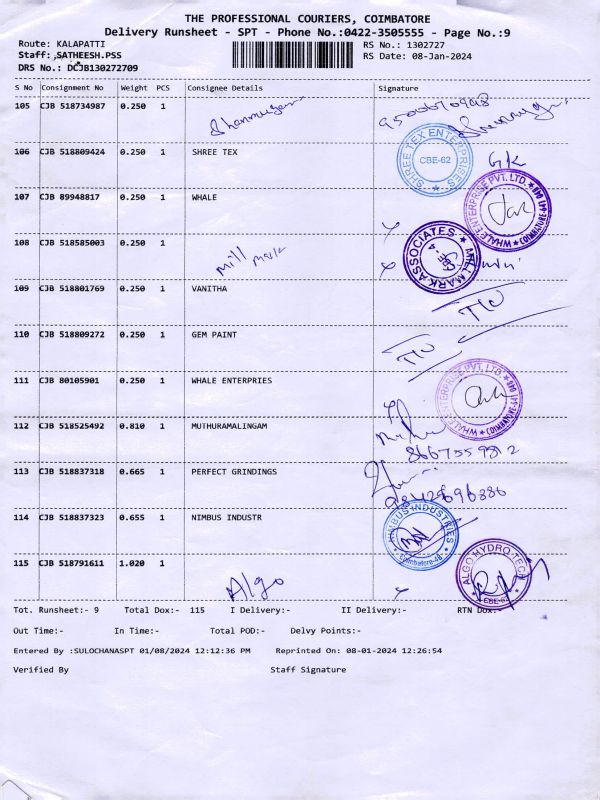 THE PROFESSIONAL COURIERS, COIMBATORE
Delivery Runsheet - SPT - Phone No.:0422-3505555 - Page No.:9
Route: KALAPATTI
RS No.: 1302727
Staff: SATHEESH.PSS
RS Date: 08-Jan-2024
DRS No.: DCJB130272709
S No Consignment No Weight PCS Consignee Details Signature
105 CJB 518734987 0.250 1
106 CJB 518809424 0.250 1 SHREE TEX
SHREE TEX ENTERPRISES CBE-62
107 CJB 89948817 0.250 1 WHALE
WHALE ENTERPRISE PVT. LTD. COIMBATORE-641
108 CJB 518585003 0.250 1 Mill Mark
MILL MARK ASSOCIATES CBE
109 CJB 518801769 0.250 1 VANITHA
110 CJB 518809272 0.250 1 GEM PAINT
111 CJB 80105901 0.250 1 WHALE ENTERPRIES
WHALE ENTERPRISE PVT. LTD. COIMBATORE-641
112 CJB 518525492 0.810 1 MUTHURAMALINGAM
8667559812
113 CJB 518837318 0.665 1 PERFECT GRINDINGS
9842696386
114 CJB 518837323 0.655 1 NIMBUS INDUSTR
NIMBUS INDUSTRIES Coimbatore-48
115 CJB 518791611 1.020 1 Algo
ALGO HYDRO TECH CBE-62
Tot. Runsheet:- 9 Total Dox:- 115 I Delivery:- II Delivery:- RTN Dox:-
Out Time:- In Time:- Total POD:- Delvy Points:-
Entered By :SULOCHANASPT 01/08/2024 12:12:36 PM Reprinted On: 08-01-2024 12:26:54
Verified By Staff Signature